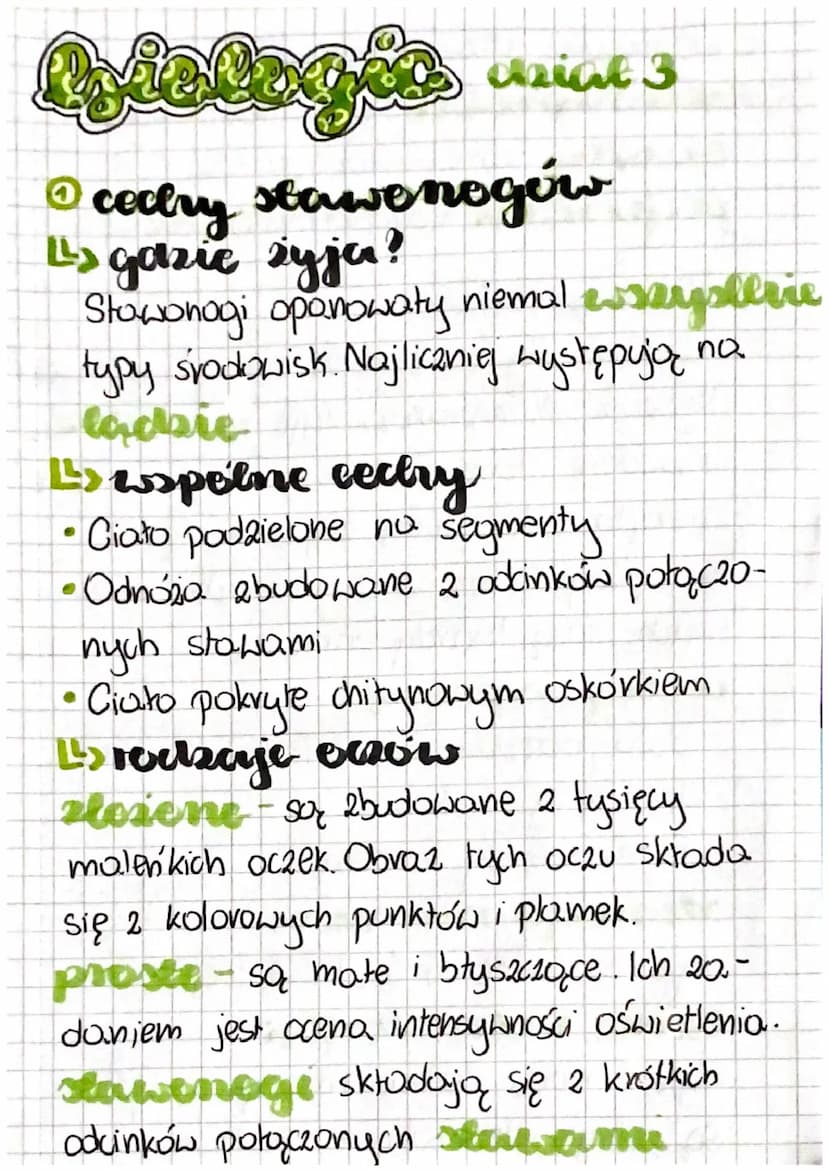 biologia dział 3
1 cechy stawonogów
↳ gdzie żyją?
Stawonogi opanowały niemal wszystkie
typy środowisk. Najliczniej występują na
lądzie
↳ wspólne cechy
• Ciało podzielone na segmenty
• Odnóża zbudowane z odcinków połączo-
nych stawami
• Ciało pokryte chitynowym oskórkiem
↳ rodzaje oczów
złożone - są zbudowane z tysięcy
maleńkich oczek. Obraz tych oczu składa
się z kolorowych punktów i plamek.
proste - są małe i błyszczące. Ich za-
daniem jest ocena intensywności oświetlenia.
stawonogi składają się z krótkich
odcinków połączonych stawami